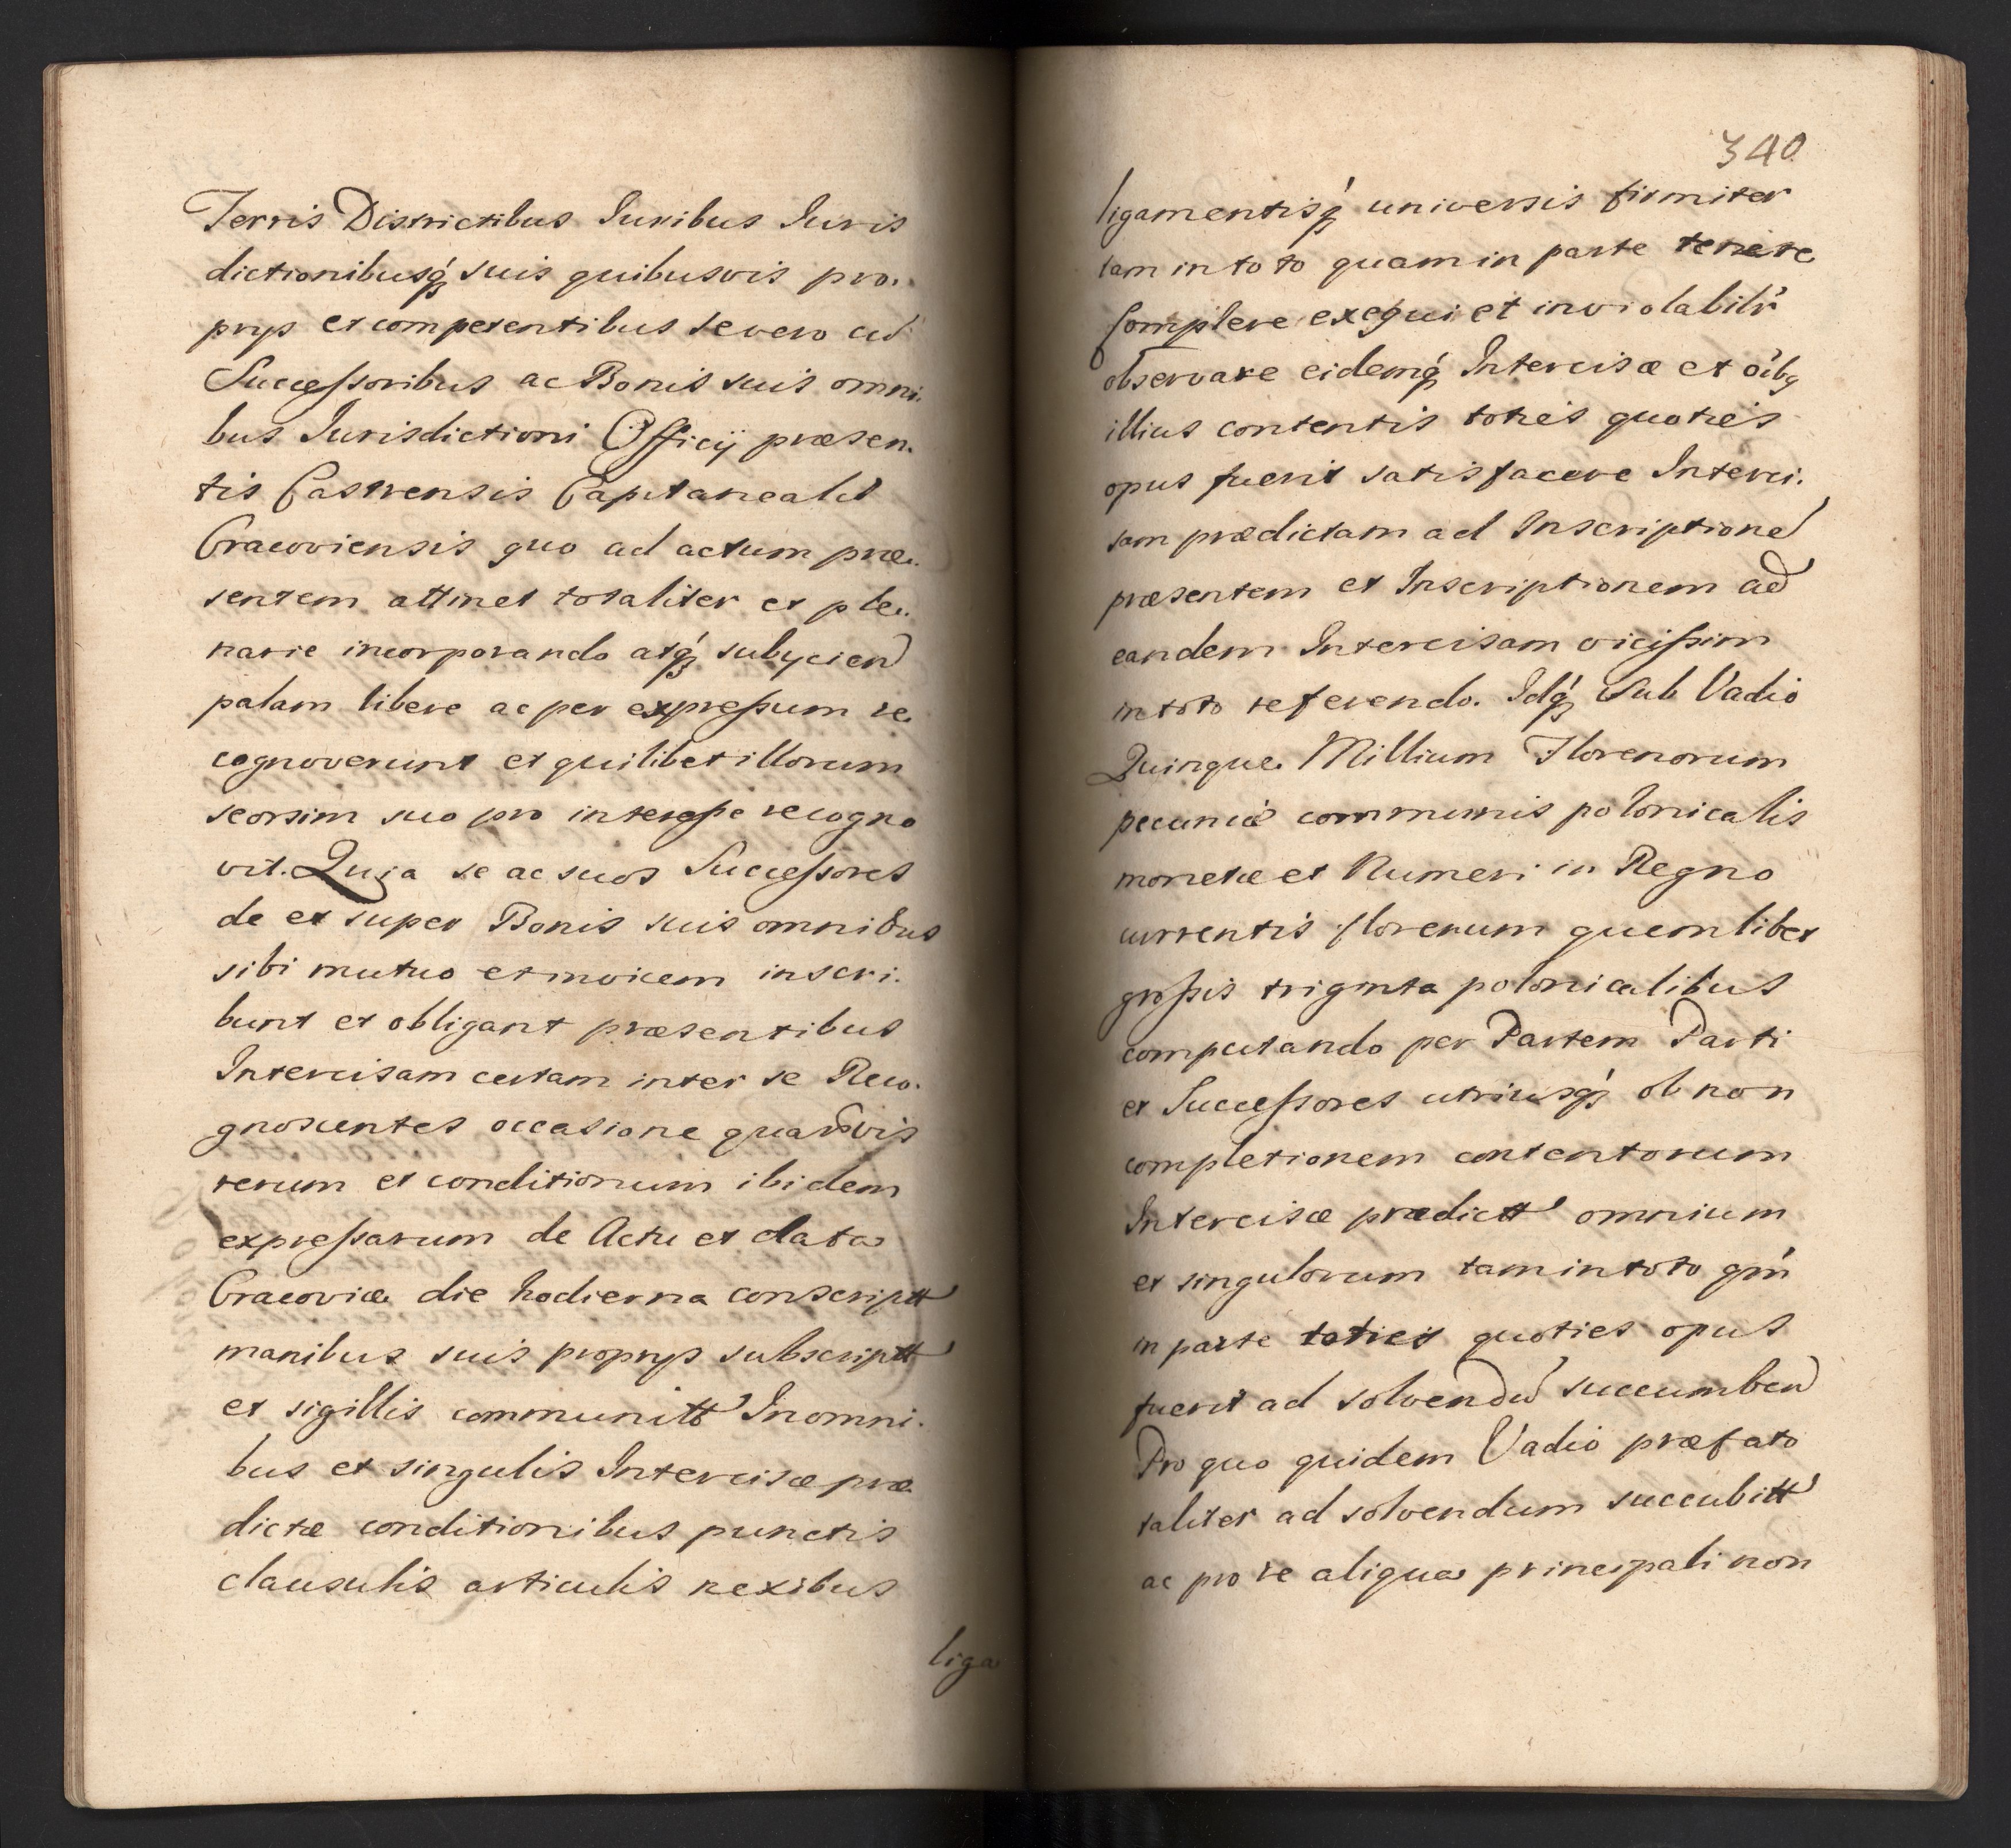 Terris Districtibus Juribus Juris
dictionibusq́ suis quibusvis pro.
prijs et competentibus se vero cũ
Successoribus ac Bonis suis omni.
bus Jurisdictioni Officij præsen.
tis Castrensis Capitanealis
Cracoviensis quo ad actum præ.
sentem attinet totaliter et ple.
narie incorporando atq́ subijcien̄
palam libere ac per expressum re
cognoverunt et quilibet illorum
seorsim suo pro interesse recogno
vit. Quia se ac suos Successores
de et super Bonis suis omnibus
sibi mutuo et invicem inscri.
bunt et obligant præsentibus
Intercisam certam inter se Reco.
gnoscentes occasione quarūvis
rerum et conditionum ibidem
expressarum de Actu et data
Cracoviæ die hodierna conscriptt
manibus suis proprijs subscriptt
et sigillis communitt In omni.
bus et singulis Intercisæ præ
dictæ conditionibus punctis
clausulis articulis nexibus
liga
340
ligamentisq́ universis firmiter
tam in toto quam in parte tenere
Complere exequi et inviolabilr̃
observare eidemq́ Intercisæ et oĩbq
illius contentis toties quoties
opus fuerit satisfacere Interci.
sam prædictam ad Inscriptionē
præsentem et Inscriptionem ad
eandem Intercisam vicissim
in toto referendo. Idq́ Sub Vadio
Quinque Millium Florenorum
pecuniæ communis polonicalis
monetæ et Numeri in Regno
currentis florenum quemlibet
grossis triginta polonicalibus
computando per Partem Parti
et Successores utriusq́ ob non
completionem contentorum
Intercisæ prædictt omnium
et singulorum tam in toto qm̃
in parte toties quoties opus
fuerit ad solvendū succumben̄
Pro quo quidem Vadio præfato
taliter ad solvendum succubitt
ac pro re aliqua principali non